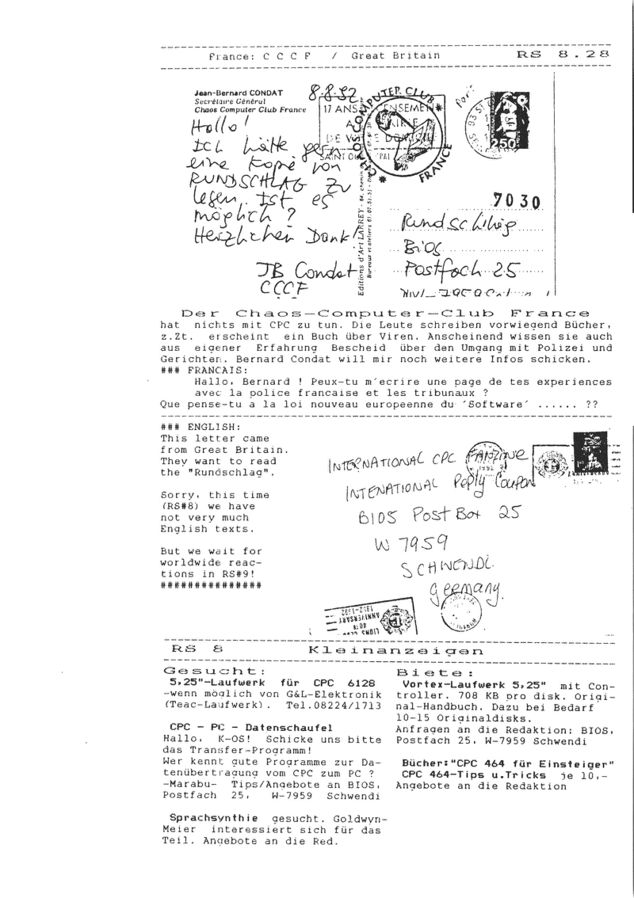 France: C C C F / Great Britain RS 8.28
Jean-Bernard CONDAT
Secrétaire Général
Chaos Computer Club France
8.8.92
Hallo!
Ich hätte gern
eine Kopie von
RUNDSCHLAG zu
lesen. Ist es
möglich ?
Herzlichen Dank!
JB Condat
CCCF
17 ANS
COMPUTER CLUB
FRANCE
Editions d'Art LARREY
2,50
7030
Rundschlag
Bios
Postfach 25
Der Chaos-Computer-Club France
hat nichts mit CPC zu tun. Die Leute schreiben vorwiegend Bücher,
z.Zt. erscheint ein Buch über Viren. Anscheinend wissen sie auch
aus eigener Erfahrung Bescheid über den Umgang mit Polizei und
Gerichten. Bernard Condat will mir noch weitere Infos schicken.
### FRANCAIS:
Hallo, Bernard ! Peux-tu m'ecrire une page de tes experiences
avec la police francaise et les tribunaux ?
Que pense-tu a la loi nouveau europeenne du 'Software' ...... ??
### ENGLISH:
This letter came
from Great Britain.
They want to read
the "Rundschlag".
Sorry, this time
(RS#8) we have
not very much
English texts.
But we wait for
worldwide reac-
tions in RS#9!
###############
INTERNATIONAL CPC FANZINE
INTENATIONAL Reply Coupon
BIOS POST BOX 25
W 7959
SCHWENDI.
Germany.
RS 8 Kleinanzeigen
Gesucht:
5,25"-Laufwerk für CPC 6128
-wenn möglich von G&L-Elektronik
(Teac-Laufwerk). Tel.08224/1713
CPC - PC - Datenschaufel
Hallo, K-OS! Schicke uns bitte
das Transfer-Programm!
Wer kennt gute Programme zur Da-
tenübertragung vom CPC zum PC ?
-Marabu- Tips/Angebote an BIOS,
Postfach 25, W-7959 Schwendi
Sprachsynthie gesucht. Goldwyn-
Meier interessiert sich für das
Teil. Angebote an die Red.
Biete:
Vortex-Laufwerk 5,25" mit Con-
troller. 708 KB pro disk. Origi-
nal-Handbuch. Dazu bei Bedarf
10-15 Originaldisks.
Anfragen an die Redaktion: BIOS,
Postfach 25, W-7959 Schwendi
Bücher:"CPC 464 für Einsteiger"
CPC 464-Tips u.Tricks je 10,-
Angebote an die Redaktion